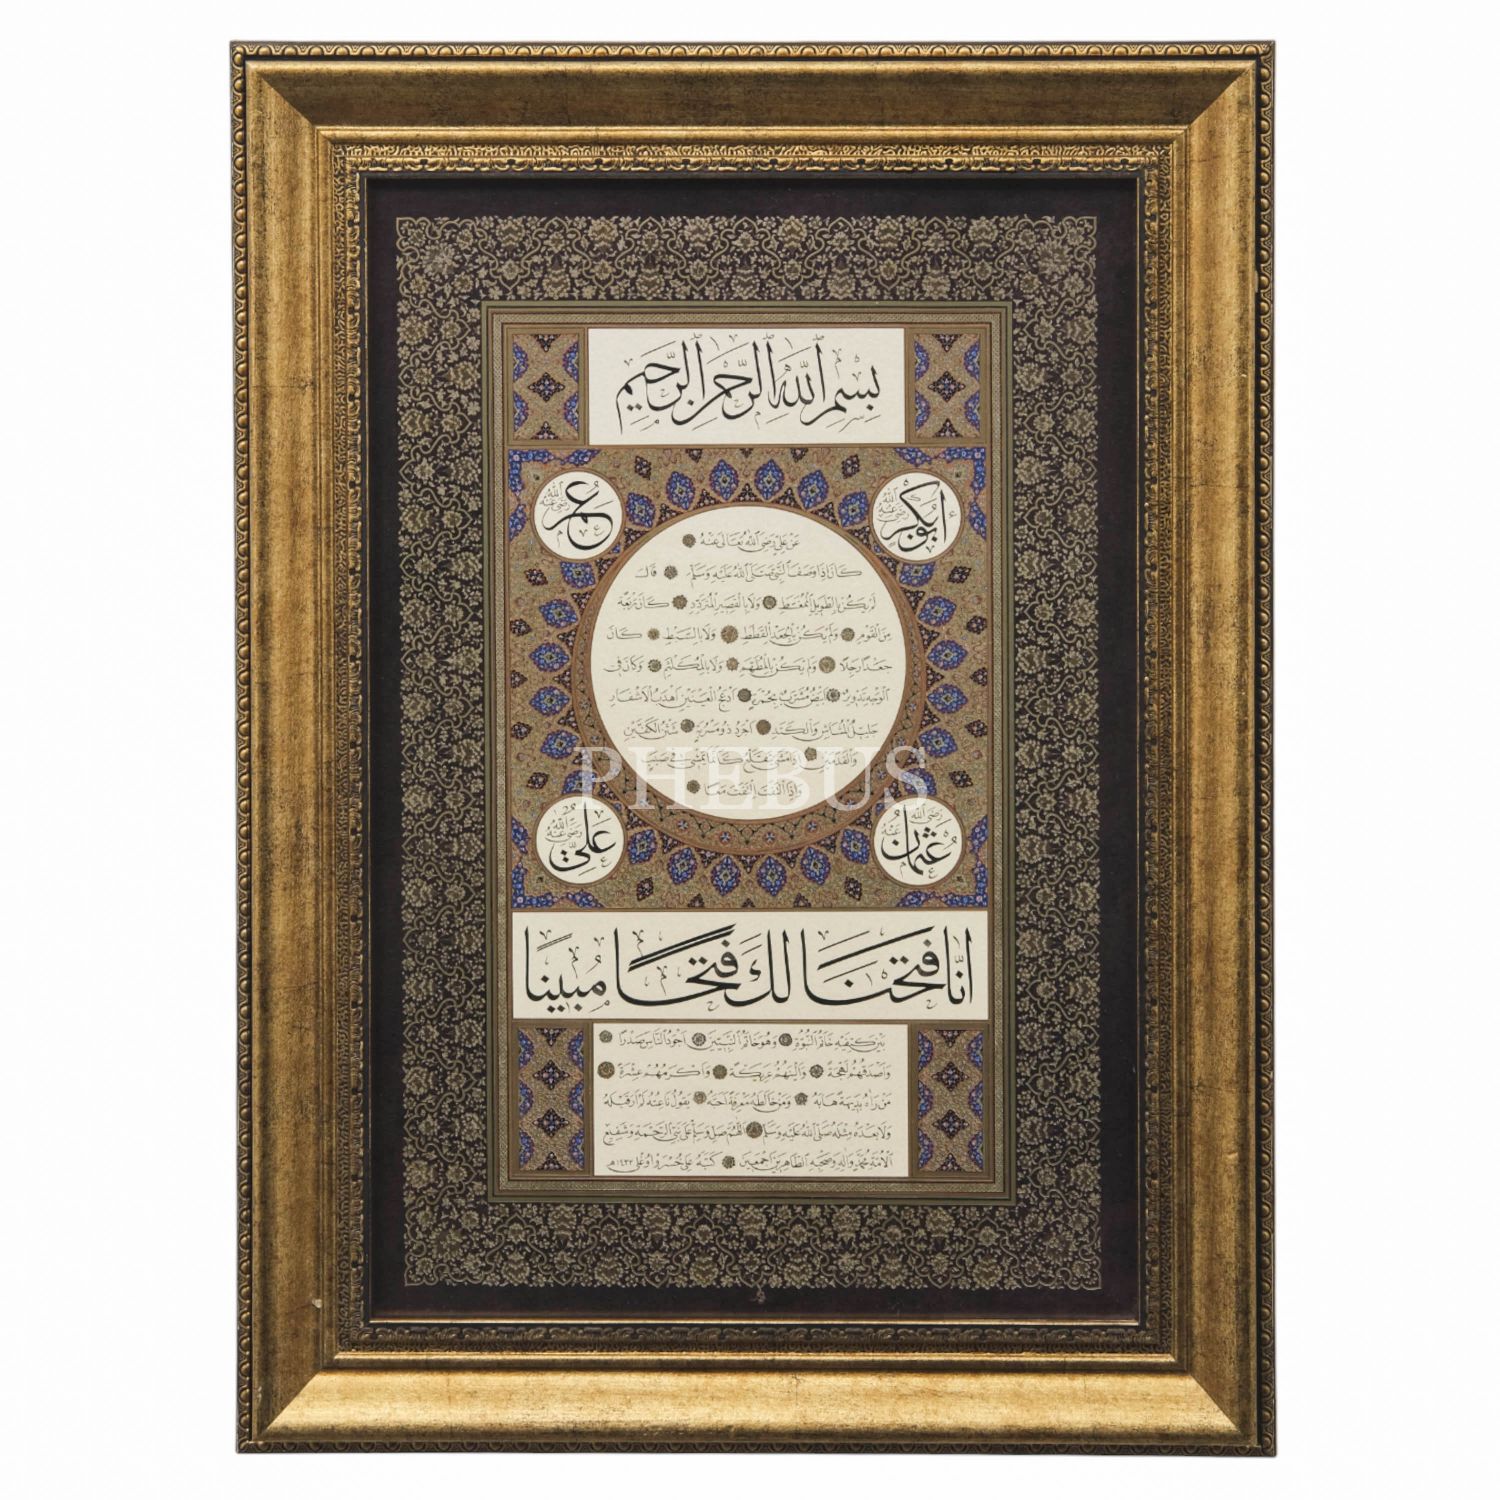 بِسْمِ ٱللَّهِ ٱلرَّحْمَنِ ٱلرَّحِيمِ
أبو بكر رضي الله عنه
عمر رضي الله عنه
عن علي رضي الله تعالى عنه
كان إذا وصف النبي صلى الله عليه وسلم قال
لم يكن بالطويل الممغط ولا بالقصير المتردد كان ربعة
من القوم ولم يكن بالجعد القطط ولا بالسبط كان
جعدا رجلا ولم يكن بالمطهم ولا بالمكلثم وكان في
الوجه تدوير ابيض مشرب بحمرة ادعج العينين اهدب الاشفار
جليل المشاش والكتد اجرد ذو مسربة شثن الكفين
والقدمين اذا مشى تقلع كانما يمشي في صبب
واذا التفت التفت معا
PHEBUS
عثمان رضي الله عنه
علي رضي الله عنه
انا فتحنا لك فتحا مبينا
بين كتفيه خاتم النبوة وهو خاتم النبيين اجود الناس صدرا
واصدقهم لهجة والينهم عريكة واكرمهم عشرة
من رآه بديهة هابه ومن خالطه معرفة احبه يقول ناعته لم ار قبله
ولا بعده مثله صلى الله عليه وسلم اللهم صل وسلم على نبي الرحمة وشفيع
الامة محمد وآله وصحبه الطاهرين اجمعين كتبه علي خسرو اوغلي ١٤٣٢هـ